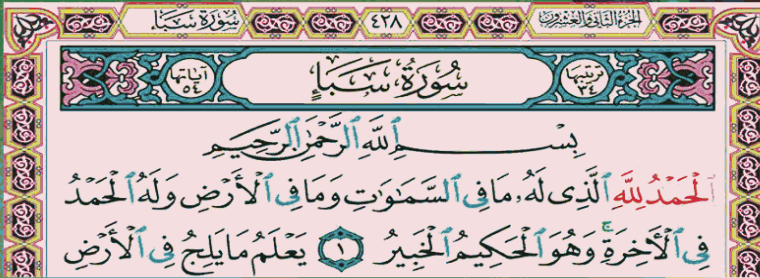 الجزء الثاني والعشرون ٤٢٨ سُورَةُ سَبَإٍ
ترتيبها ٣٤ سُورَةُ سَبَإٍ آياتها ٥٤
بِسْمِ ٱللَّهِ ٱلرَّحْمَٰنِ ٱلرَّحِيمِ
ٱلْحَمْدُ لِلَّهِ ٱلَّذِى لَهُۥ مَا فِى ٱلسَّمَٰوَٰتِ وَمَا فِى ٱلْأَرْضِ وَلَهُ ٱلْحَمْدُ
فِى ٱلْأَخِرَةِ ۚ وَهُوَ ٱلْحَكِيمُ ٱلْخَبِيرُ ١ يَعْلَمُ مَا يَلِجُ فِى ٱلْأَرْضِ